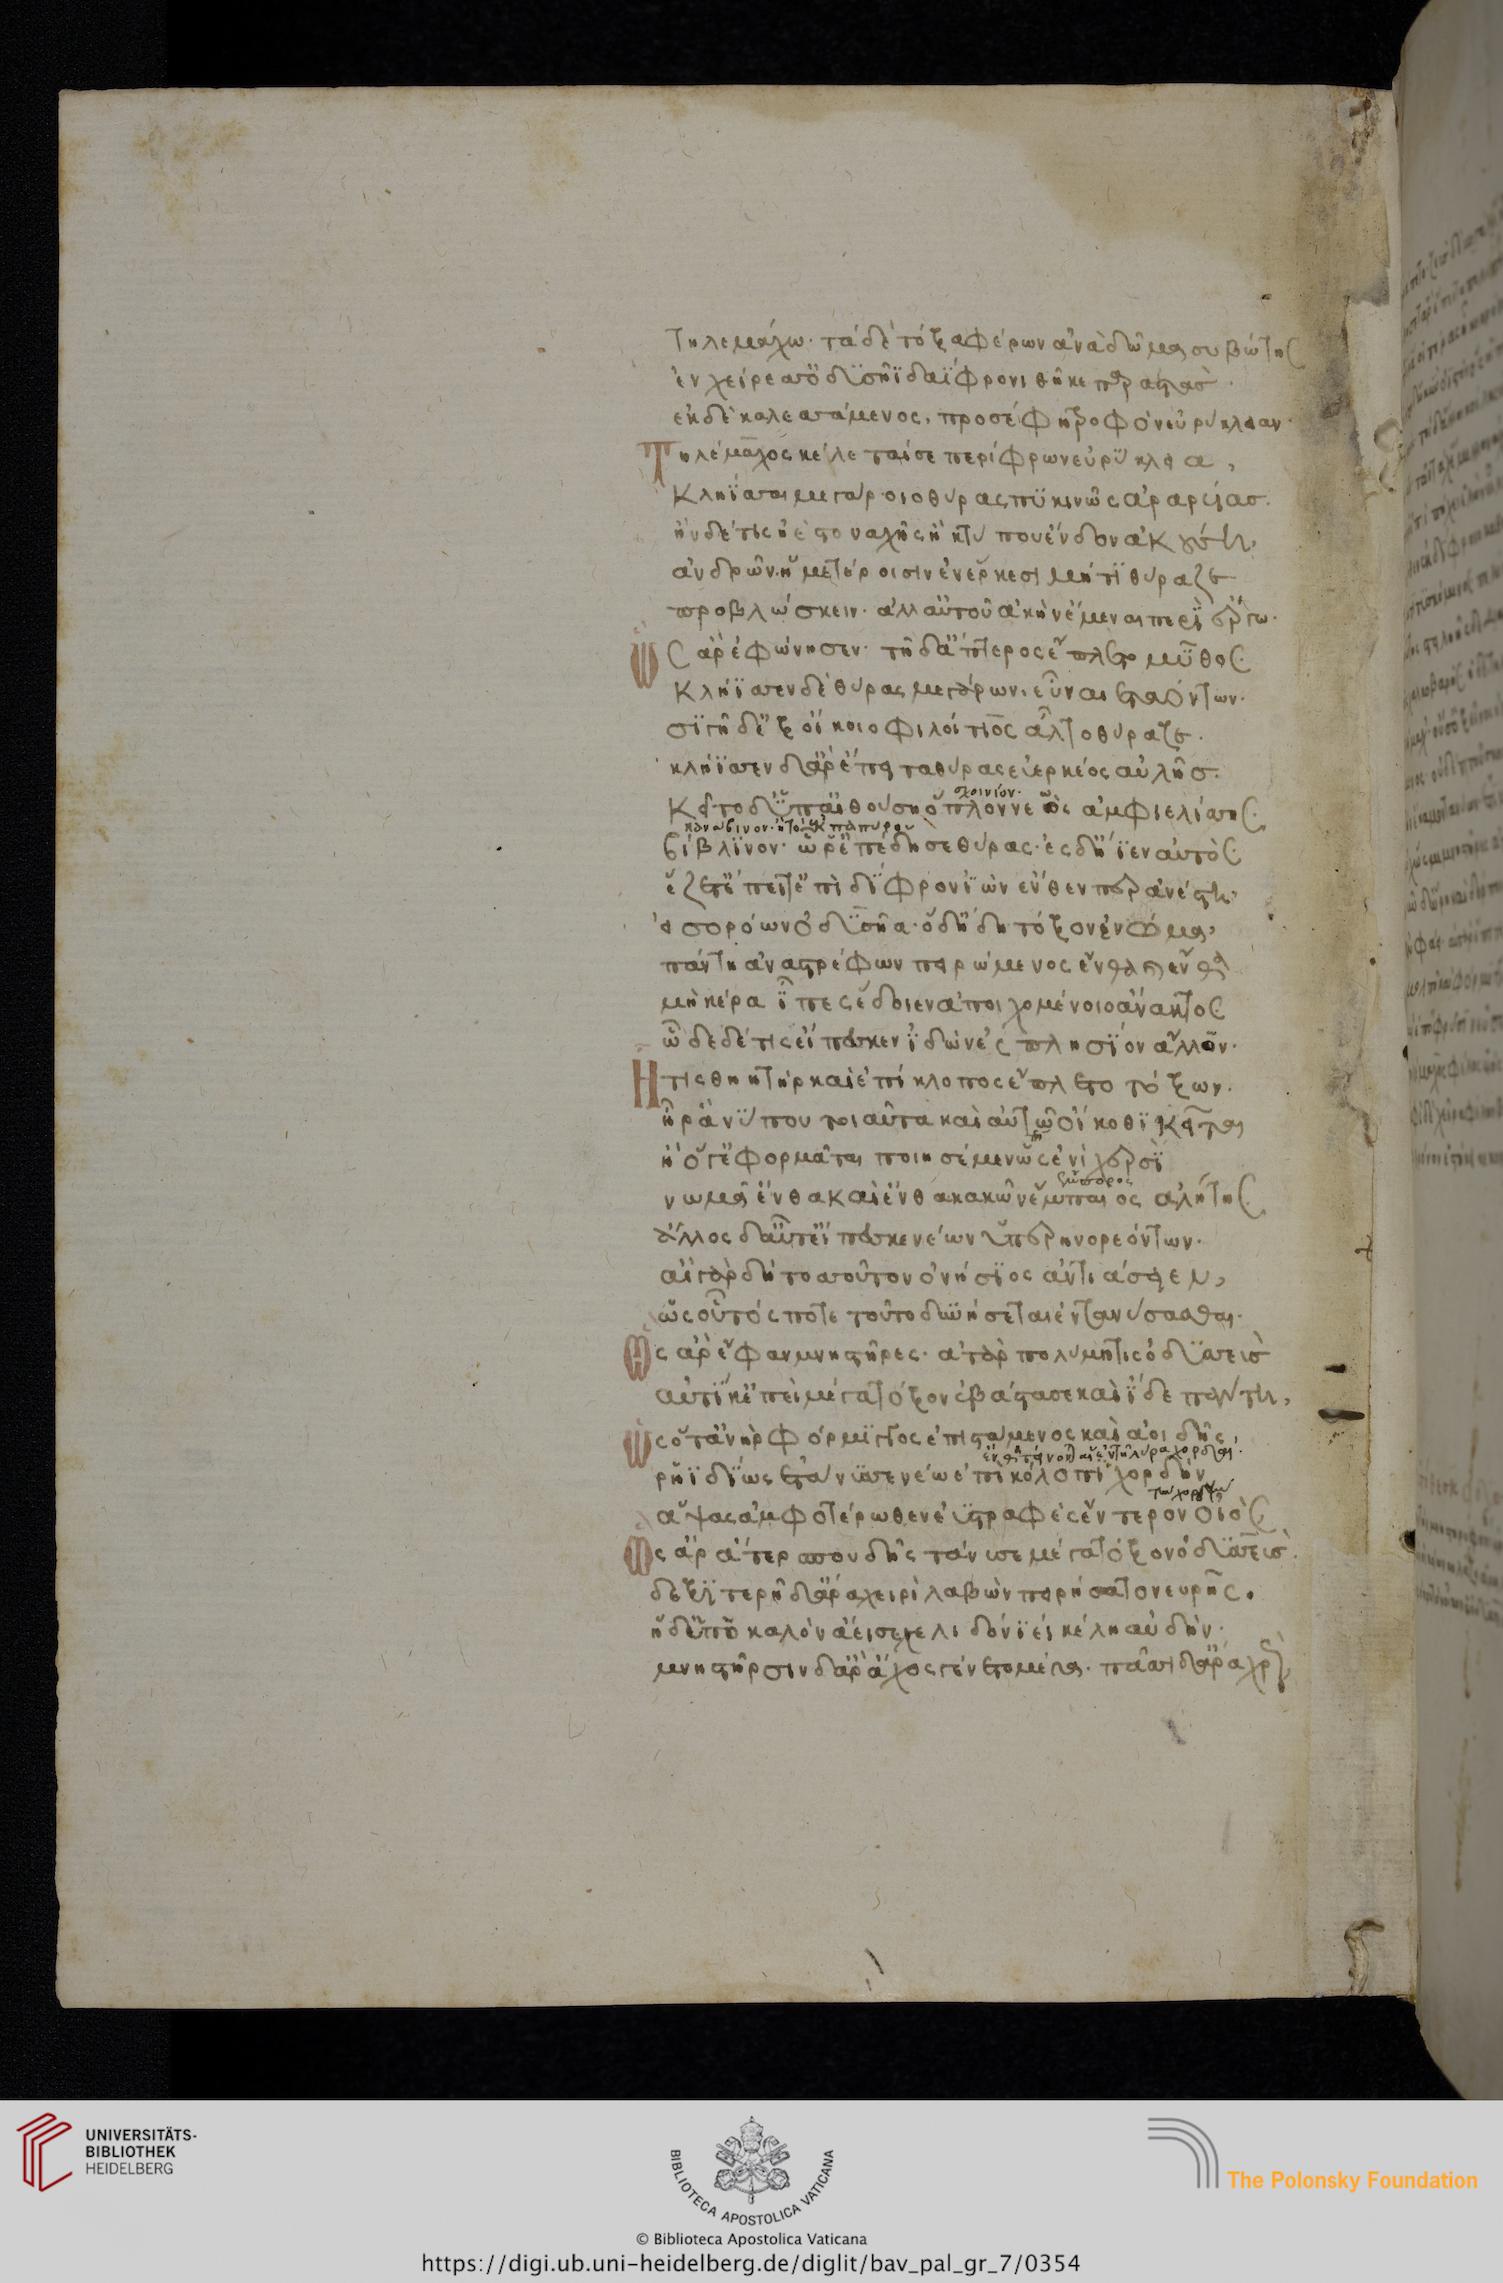 Τηλεμάχω· τὰ δὲ τόξα φέρων ἀνὰ δῶμα συβώτης
ἐν χείρεσσ' ὀδυσῆϊ δαΐφρονι θῆκε παραστάσ·
ἐκ δὲ καλεσσάμενος, προσέφη τροφὸν εὐρύκλειαν·
Τηλέμαχος κέλεταί σε περίφρων εὐρύκλεια,
κληΐσσαι μεγάροιο θύρας πυκινῶς ἀραρυίασ·
ἢν δέ τις ἢ στοναχῆς ἠὲ κτύπου ἔνδον ἀκούση,
ἀνδρῶν ἡμετέροισιν ἐν ἕρκεσι μή τι θύραζε
προβλώσκειν· ἀλλ' αὐτοῦ ἀκὴν ἔμεναι περὶ ἔργω·
Ὣς ἄρ' ἐφώνησεν· τῆ δ' ἄπτερος ἔπλετο μῦθος·
κλήϊσσεν δὲ θύρας μεγάρων εὖ ναιεταόντων·
σιγῆ δ' ἐξ οἴκοιο φιλοίτιος ἆλτο θύραζε·
κλήϊσσεν δ' ἄρ' ἔπειτα θύρας εὐερκέος αὐλῆσ·
σχοινίον·
Κεῖτο δ' ὑπ' αἰθούση ὅπλον νεὸς ἀμφιελίσσης·
καναβινον· ἢ τὸ ἐκ παπύρου
βίβλινον· ὧ ῥ' ἐπέδησε θύρας· ἐς δ' ἤϊεν αὐτός·
ἕζετ' ἔπειτ' ἐπὶ δίφρον ἰὼν ἔνθεν περ ἀνέστη,
εἰσορόων ὀδυσῆα· ὁ δ' ἤδη τόξον ἐνώμα,
πάντη ἀναστρέφων πειρώμενος ἔνθα καὶ ἔνθα
μὴ κέρα ἶπες ἔδοιεν ἀποιχομένοιο ἄνακτος
ὧδε δέ τις εἴπεσκεν ἰδὼν ἐς πλησίον ἄλλον·
Ἦ τις θηητὴρ καὶ ἐπίκλοπος ἔπλετο τόξων·
ἦ ῥά νύ που τοιαῦτα καὶ αὐτῶ οἴκοθι κεῖται
ἢ ὅ γ' ἐφορμᾶται ποιησέμεν ὡς ἐνὶ χερσὶ
νωμᾶ ἔνθα καὶ ἔνθα κακῶν ἔμπαιος ἀλήτης·
ἄλλος δ' αὖτ' εἴπεσκε νέων ὑπερηνορεόντων·
αἲ γὰρ δὴ τοσσοῦτον ὀνήσιος ἀντιάσειεν,
ὡς οὗτός ποτε τοῦτο δυνήσεται ἐντανύσασθαι·
Ὣς ἄρ' ἔφαν μνηστῆρες· ἀτὰρ πολύμητις ὀδυσσεὺσ
αὐτίκ' ἐπεὶ μέγα τόξον ἐβάστασε καὶ ἴδε πάντη,
Ὡς ὅτ' ἀνὴρ φόρμιγγος ἐπιστάμενος καὶ ἀοιδῆς,
ῥηϊδίως ἐτάνυσσε νέω ἐπὶ κόλοπι χορδὴν
ἅψας ἀμφοτέρωθεν ἐϋστραφὲς ἔντερον οἰὸς
Ὣς ἄρ' ἄτερ σπουδῆς τάνυσε μέγα τόξον ὀδυσσεύσ·
δεξιτερῆ δ' ἄρα χειρὶ λαβὼν πειρήσατο νευρῆς·
ἡ δ' ὑπὸ καλὸν ἄεισε χελιδόνι εἰκέλη αὐδήν·
μνηστῆρσιν δ' ἄρ' ἄχος γένετο μέγα· πᾶσι δ' ἄρα χρὼς
UNIVERSITÄTS-
BIBLIOTHEK
HEIDELBERG
BIBLIOTECA APOSTOLICA VATICANA
The Polonsky Foundation
© Biblioteca Apostolica Vaticana
https://digi.ub.uni-heidelberg.de/diglit/bav_pal_gr_7/0354